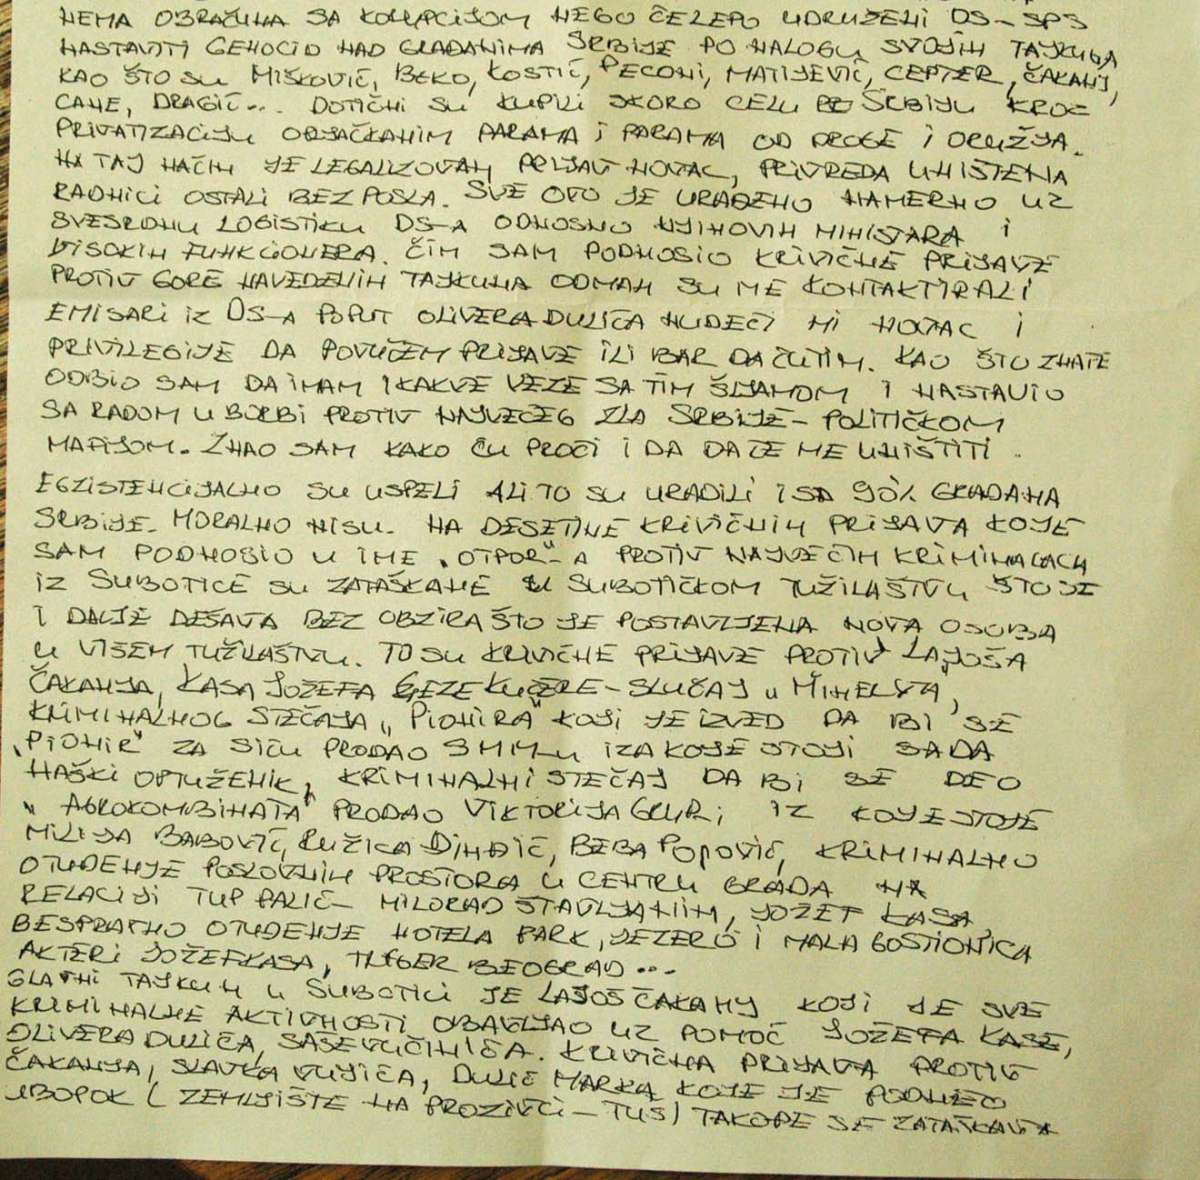 NEMA OBRAČUNA SA KORUPCIJOM NEGO ĆE LEPO UDRUŽENI DS-SPS
NASTAVITI GENOCID NAD GRAĐANIMA SRBIJE PO NALOGU SVOJIH TAJKUNA
KAO ŠTO SU MIŠKOVIĆ, BEKO, KOSTIĆ, PECONI, MATIJEVIĆ, CEPTER, ČAKANJ,
CANE, DRAGIĆ... DOTIČNI SU KUPILI SKORO CELU SRBIJU KROZ
PRIVATIZACIJU OPLJAČKANIM PARAMA I PARAMA OD DROGE I ORUŽJA.
NA TAJ NAČIN JE LEGALIZOVAN PRLJAV NOVAC, PRIVREDA UNIŠTENA
RADNICI OSTALI BEZ POSLA. SVE OVO JE URAĐENO NAMERNO UZ
SVESRDNU LOGISTIKU DS-A ODNOSNO NJIHOVIH MINISTARA I
VISOKIH FUNKCIONERA. ČIM SAM PODNOSIO KRIVIČNE PRIJAVE
PROTIV GORE NAVEDENIH TAJKUNA ODMAH SU ME KONTAKTIRALI
EMISARI IZ DS-A POPUT OLIVERA DULIĆA NUDEĆI MI NOVAC I
PRIVILEGIJE DA POVUČEM PRIJAVE ILI BAR DA ĆUTIM. KAO ŠTO ZNATE
ODBIO SAM DA IMAM IKAKVE VEZE SA TIM ŠLJAMOM I NASTAVIO
SA RADOM U BORBI PROTIV NAJVEĆEG ZLA SRBIJE - POLITIČKOM
MAFIJOM. ZNAO SAM KAKO ĆU PROĆI I DA DA ĆE ME UNIŠTITI.
EGZISTENCIJALNO SU USPELI ALI TO SU URADILI I SA 90% GRAĐANA
SRBIJE. MORALNO NISU. NA DESETINE KRIVIČNIH PRIJAVA KOJE
SAM PODNOSIO U IME "OTPOR"-A PROTIV NAJVEĆIH KRIMINALACA
IZ SUBOTICE SU ZATAŠKANE U SUBOTIČKOM TUŽILAŠTVU ŠTO SE
I DALJE DEŠAVA BEZ OBZIRA ŠTO JE POSTAVLJENA NOVA OSOBA
U VIŠEM TUŽILAŠTVU. TO SU KRIVIČNE PRIJAVE PROTIV LAJOŠA
ČAKANJA, KASA JOŽEFA GEZE KUČERE - SLUČAJ "MINELVA",
KRIMINALNOG STEČAJA "PIONIRA" KOJI JE IZVED DA BI SE
"PIONIR" ZA SIĆU PRODAO SMM-U IZA KOJE STOJI SADA
HAŠKI OPTUŽENIK, KRIMINALNI STEČAJ DA BI SE DEO
"AGROKOMBINATA" PRODAO VIKTORIJA GRUP; IZ KOJE STOJE
MILIJA BABOVIĆ, RUŽICA ĐINĐIĆ, BEBA POPOVIĆ, KRIMINALNO
OTUĐENJE POSLOVNIH PROSTORA U CENTRU GRADA NA
RELACIJI TUP PALIĆ - MILORAD STAVLJANIN, JOŽEF KASA
BESPRAVNO OTUĐENJE HOTELA PARK, JEZERO I MALA GOSTIONICA
AKTERI JOŽEF KASA, TRIGER BEOGRAD...
GLAVNI TAJKUN U SUBOTICI JE LAJOŠ ČAKANJ KOJI JE SVE
KRIMINALNE AKTIVNOSTI OBAVLJAO UZ POMOĆ JOŽEFA KASE,
OLIVERA DULIĆA, SAŠE VUČINIĆA. KRIVIČNA PRIJAVA PROTIV
ČAKANJA, SLAVKA VUJIĆA, DULIĆ MARKA KOJE JE PODNEO
UBOPOK (ZEMLJIŠTE NA PROZIVCI - TUS) TAKOĐE SE ZATAŠKAVA